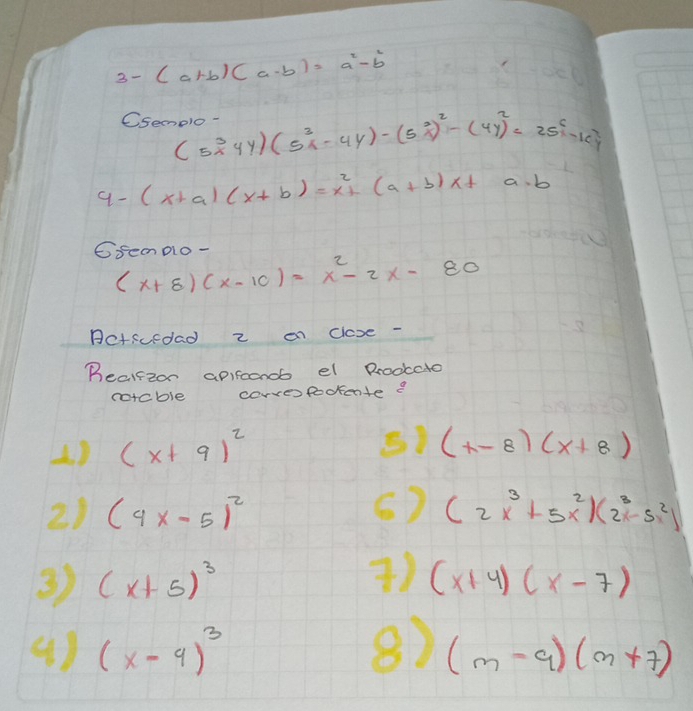 3- (a+b)(a-b)= a²-b²
Esemplo-
(5x³4y)(5x³-4y)-(5x³)²-(4y)²= 25x⁶-16y²
4- (x+a)(x+b)=x²+(a+b)x+ a.b
Esemplo-
(x+8)(x-10)= x²-2x- 80
Actividad 2 en clase-
Realizan aplicando el Producto
notable correspodiente:
1) (x+9)²
5) (x-8)(x+8)
2) (4x-5)²
6) (2x³+5x²)(2x³-5x²)
3) (x+5)³
7) (x+4)(x-7)
4) (x-9)³
8) (m-9)(m+7)